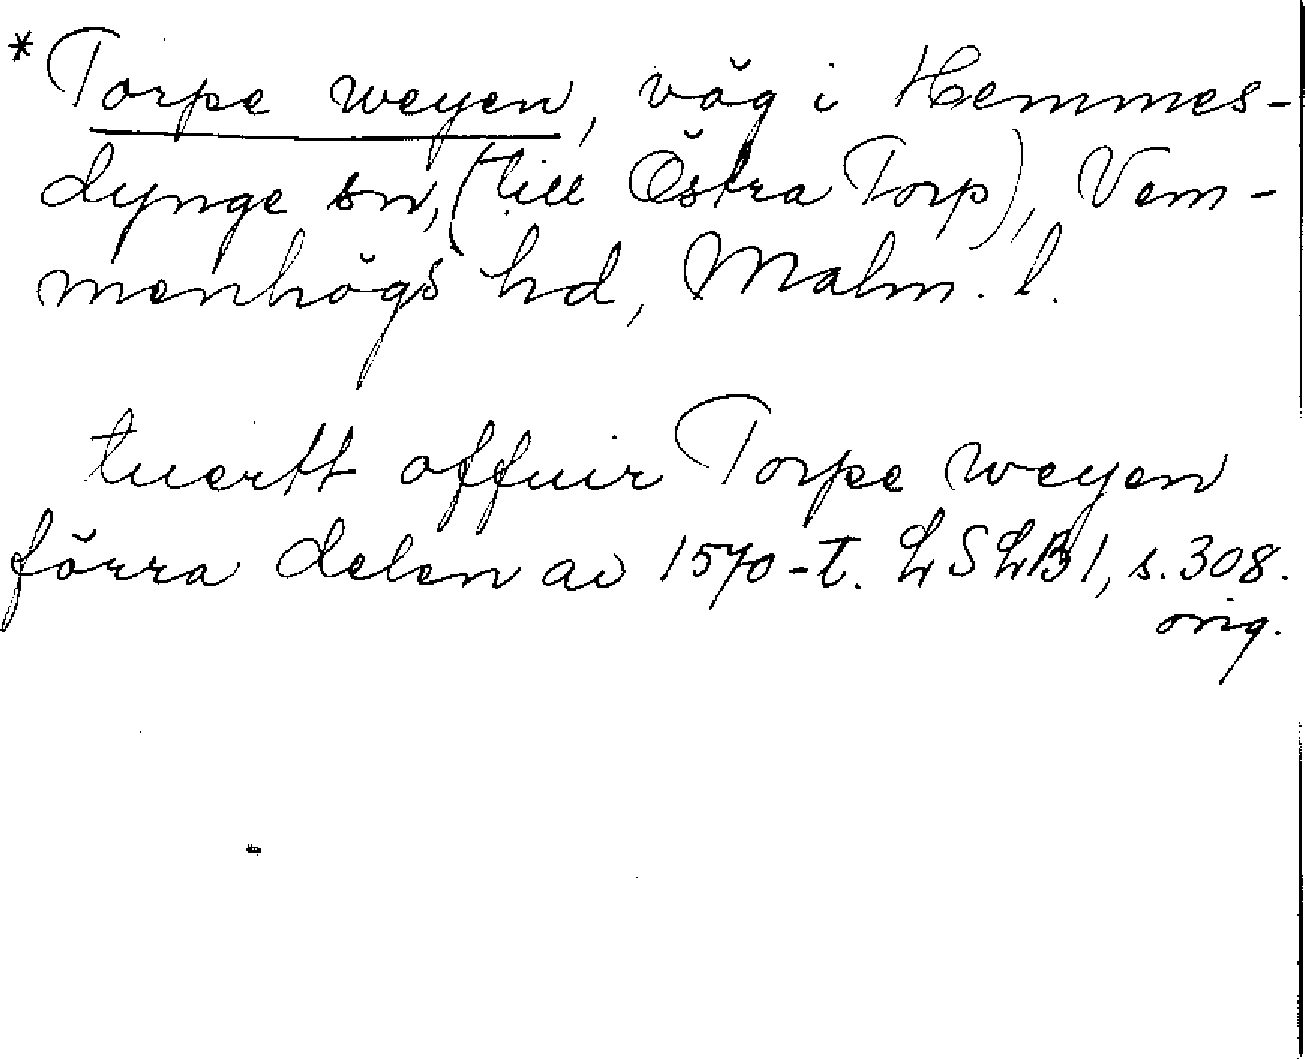 *Torpe weyen, väg i Hemmes-
dynge sn, (till Östra Torp), Vem-
menhögs hd, Malm. l.
tuertt offuir Torpe weyen
förra delen av 1570-t. LSLB1, s. 308.
orig.